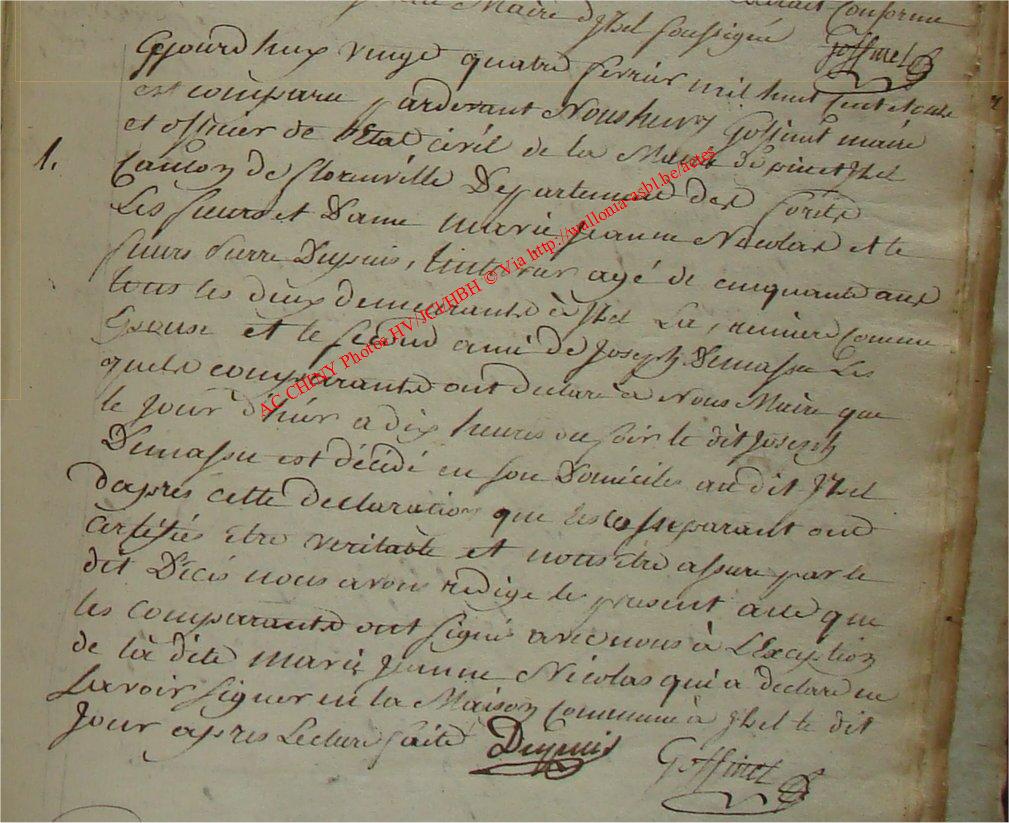 Maire d'Izel soussigné Goffinet
conforme
Cejourd'huy vingt quatre fevrier mil huit cent
est comparu pardevant Nous henry Goffinet maire
et officier de l'Etat civil de la Mairie de pin et Izel
1.
Canton de florenville Departement des forêts
Les sieurs et Dame marie Jeanne Nicolas et le
sieurs Pierre Dupuis, agé de cinquante ans
tous les deux demeurants à Izel La premiere comme
Epouse et le second ami de Joseph Demasse Les
quels comparants ont declaré à Nous Maire que
le jour d'hier a dix heures du soir le dit Joseph
Demasse est décédé en son Domicile au dit Izel
d'après cette declaration que les comparant ont
certifiés être veritable et nous être assure par le
dit Décès nous avons redige le present acte que
les comparants ont signé avec nous à L'Exception
de la dite marie Jeanne Nicolas qui a declaré ne
savoir signer en la Maison Commune à Izel le dit
Jour après Lecture faite Dupuis Goffinet
AC CHINY Photos HV/JCLHBH © Via http://wallonia-asbl.be/actes